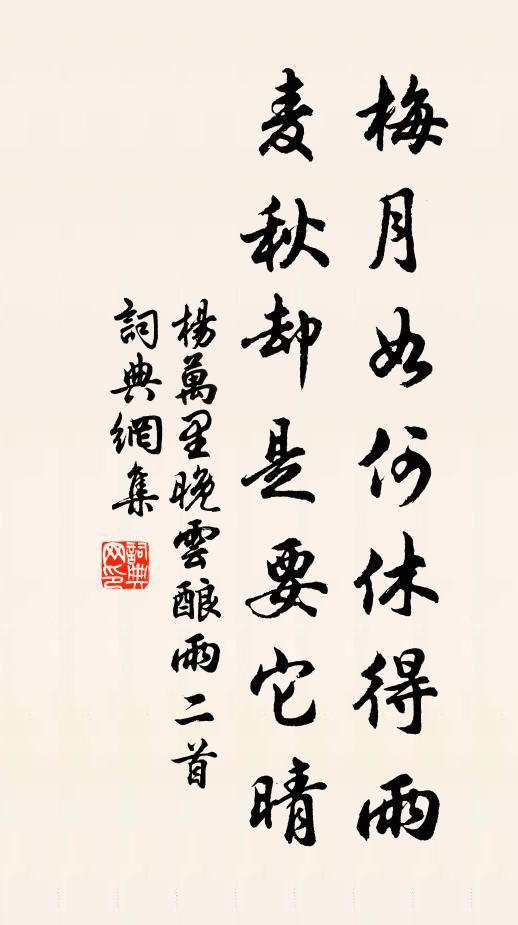 梅月如何休得雨
麦秋却是要它晴
楊萬里晚雲酿雨二首
詞典網集
詞典网印